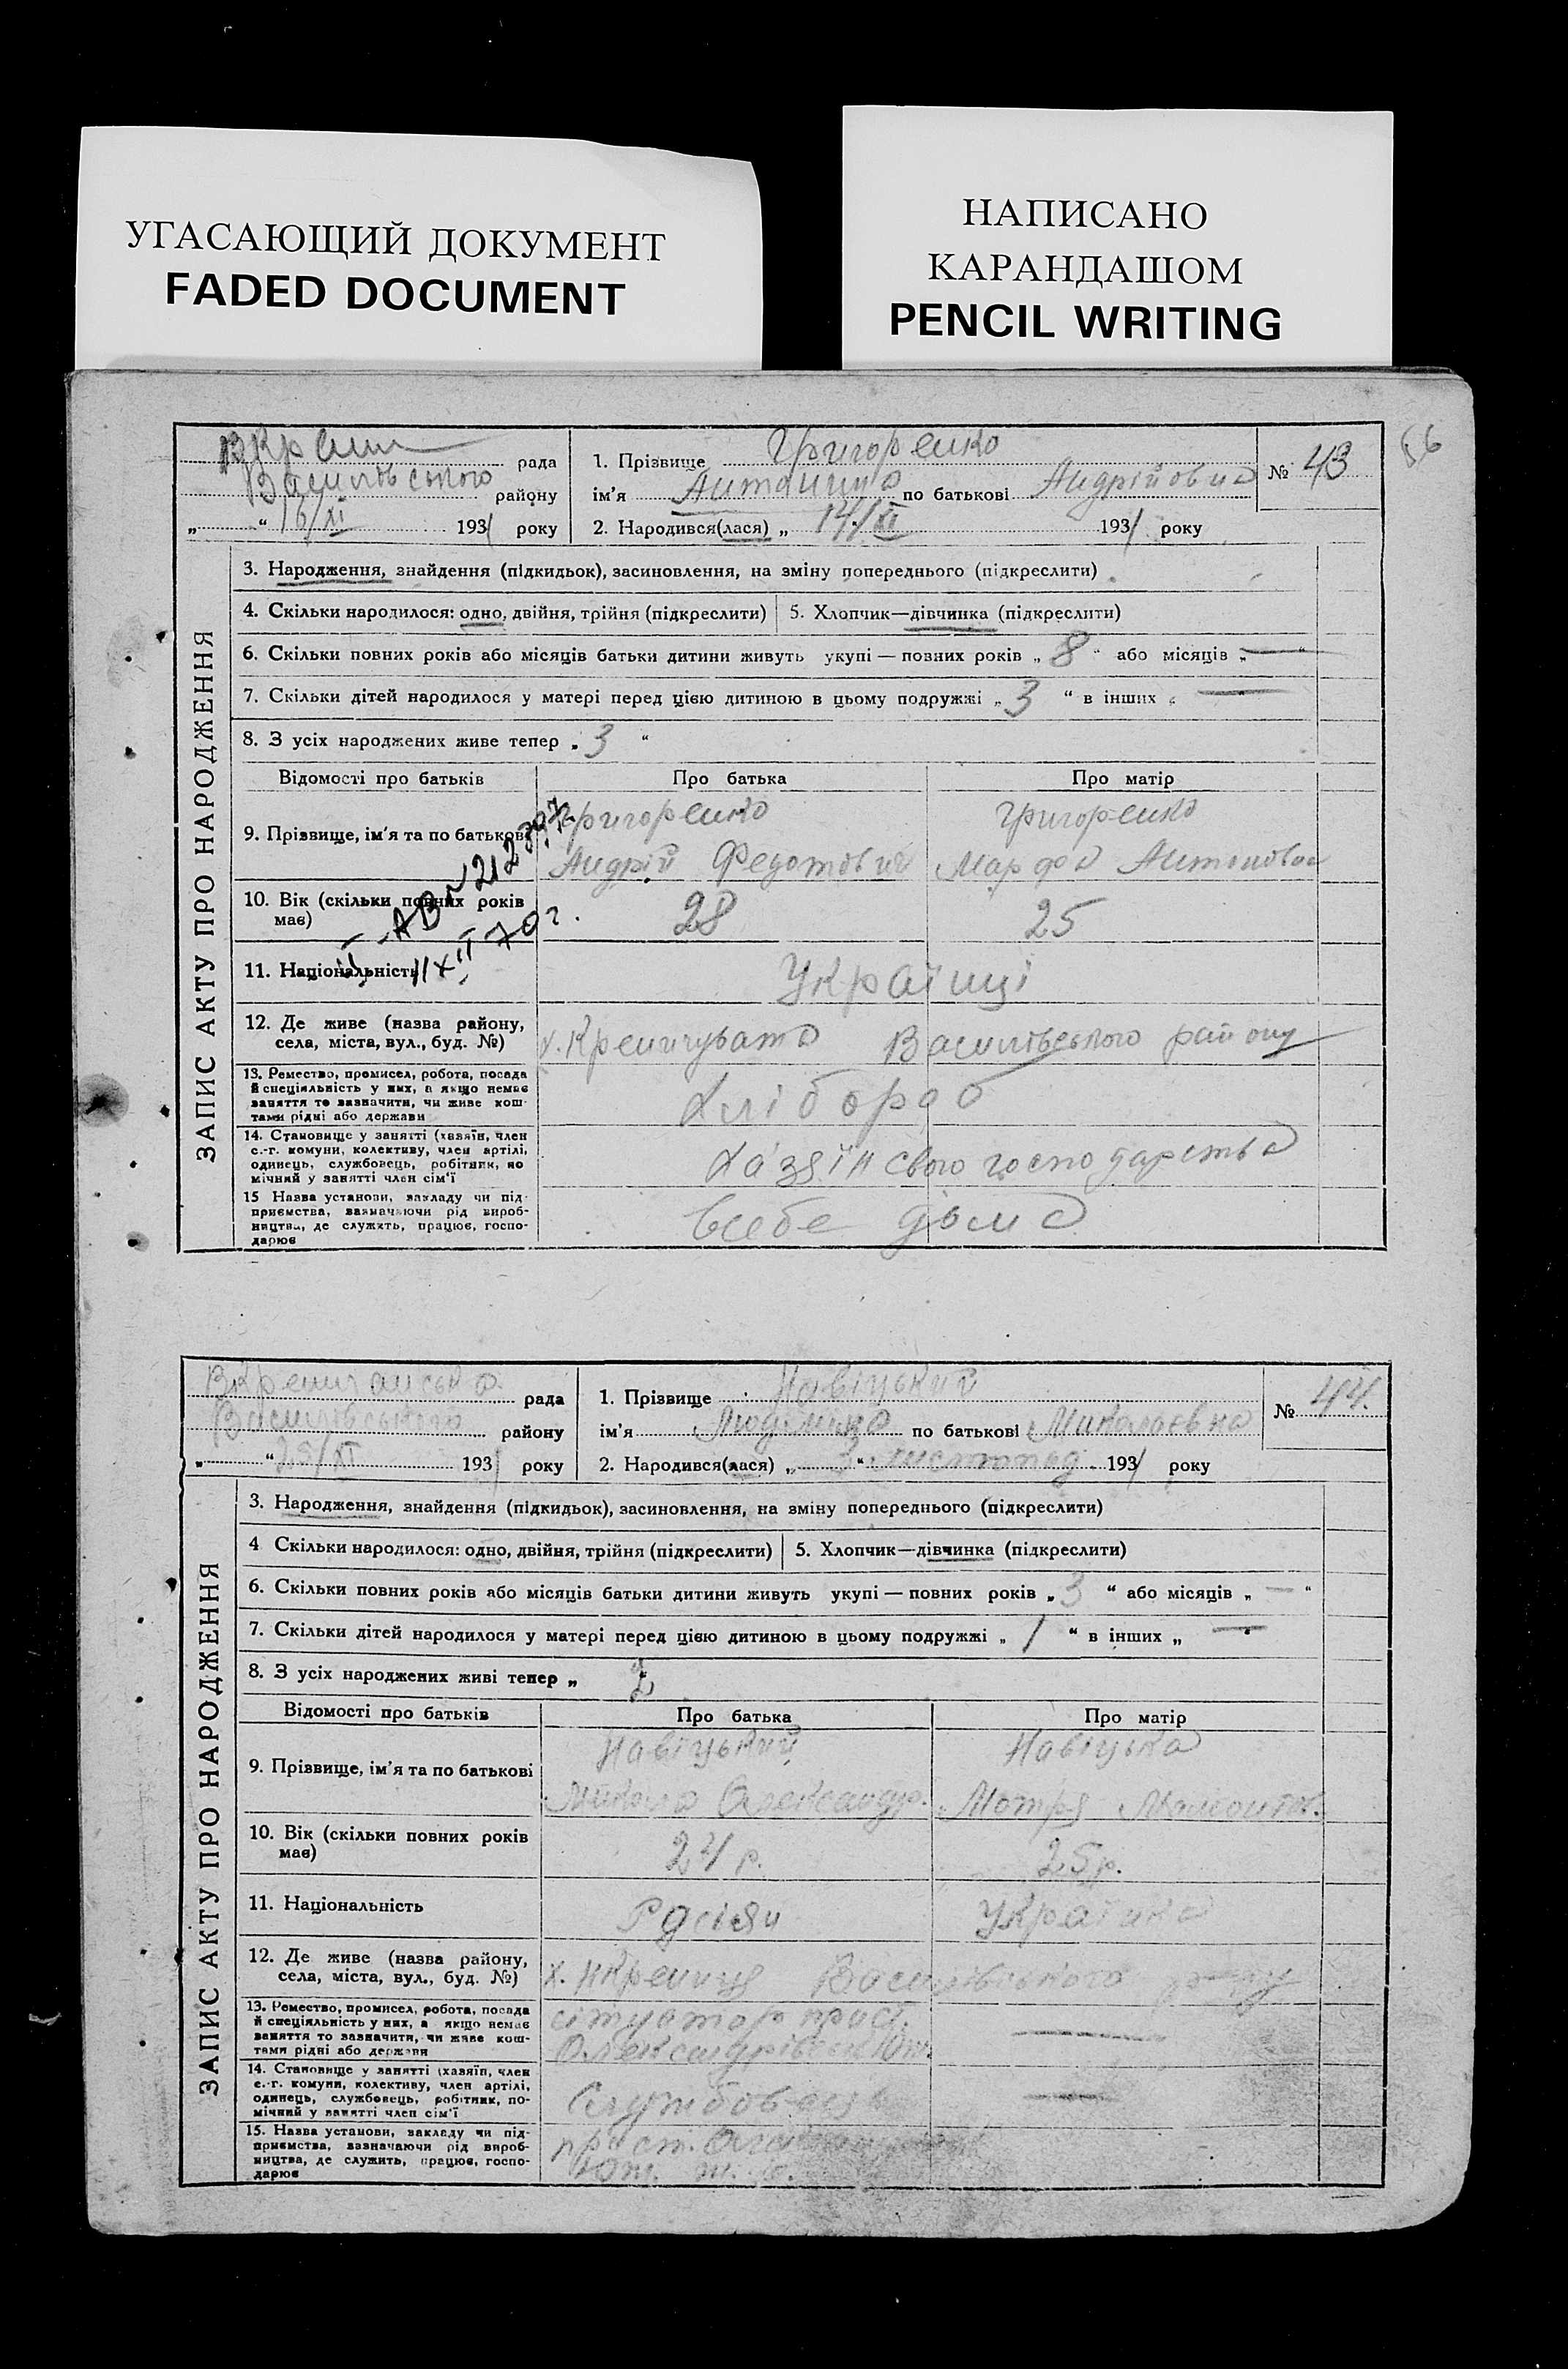 УГАСАЮЩИЙ ДОКУМЕНТ
FADED DOCUMENT
НАПИСАНО
КАРАНДАШОМ
PENCIL WRITING
56
рада
Василівського району
„ “ 16/XI 1931 року
1. Прізвище Григоренко
ім’я Антоніна по батькові Андрійовна
2. Народився(лася) „ 14/XI 1931 року
№ 43
ЗАПИС АКТУ ПРО НАРОДЖЕННЯ
3. Народження, знайдення (підкидьок), засиновлення, на зміну попереднього (підкреслити)
4. Скільки народилося: одно, двійня, трійня (підкреслити) 5. Хлопчик—дівчинка (підкреслити)
6. Скільки повних років або місяців батьки дитини живуть укупі — повних років „ 8 “ або місяців „ — “
7. Скільки дітей народилося у матері перед цією дитиною в цьому подружжі „ 3 “ в інших „ —
8. З усіх народжених живе тепер „ 3 “
Відомості про батьків Про батька Про матір
9. Прізвище, ім’я та по батькові
Григоренко Григоренко
Андрій Федотович Марфа Антоновна
10. Вік (скільки повних років має) 28 25
11. Національність Українці
12. Де живе (назва району,
села, міста, вул., буд. №)
х. Креничувата Василівського району
13. Ремество, промисел, робота, посада
й спеціяльність у них, а якщо немає
заняття то зазначити, чи живе кош-
тами рідні або держави
Хлібороб
14. Становище у занятті (хазяїн, член
с.-г. комуни, колективу, член артілі,
одинець, службовець, робітник, по
мічний у занятті член сім’ї
Хазяїн свого господарства
15 Назва установи, закладу чи під-
приємства, зазначаючи рід вироб-
ництва, де служить, працює, госпо-
дарює
Всебе дома
Василівського району
„ “ /XI 1931 року
рада
1. Прізвище Навіцький
ім’я Людміла по батькові Миколаєвна
2. Народився(лася) „ 3 “ листопад 1931 року
№ 44.
ЗАПИС АКТУ ПРО НАРОДЖЕННЯ
3. Народження, знайдення (підкидьок), засиновлення, на зміну попереднього (підкреслити)
4 Скільки народилося: одно, двійня, трійня (підкреслити) 5. Хлопчик—дівчинка (підкреслити)
6. Скільки повних років або місяців батьки дитини живуть укупі — повних років „ 3 “ або місяців „ — “
7. Скільки дітей народилося у матері перед цією дитиною в цьому подружжі „ 1 “ в інших „ — “
8. З усіх народжених живі тепер „ 2
Відомості про батьків Про батька Про матір
9. Прізвище, ім’я та по батькові
Навіцький Навіцька
Микола Олександр. Мотря
10. Вік (скільки повних років
має)
24 р. 25 р.
11. Національність
Україінка
12. Де живе (назва району,
села, міста, вул., буд. №)
Василівського
13. Ремество, промисел, робота, посада
й спеціяльність у них, а якщо немає
заняття то зазначити, чи живе кош-
тами рідні або держави
—
14. Становище у занятті (хазяїн, член
с.-г. комуни, колективу, член артілі,
одинець, службовець, робітник, по-
мічний у занятті член сім’ї
Службовець —
15. Назва установи, закладу чи під-
приємства, зазначаючи рід вироб-
ництва, де служить, працює, госпо-
дарює